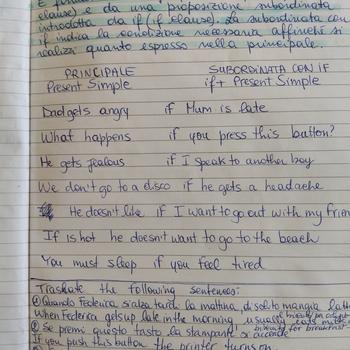 clause) e da una proposizione subordinata
introdotta da if (if clause). La subordinata con
if indica la condizione necessaria affinché si
realizzi quanto espresso nella principale.
PRINCIPALE SUBORDINATA CON IF
Present Simple if + Present Simple
Dad gets angry if Mum is late
What happens if you press this button?
He gets jealous if I speak to another boy
We don't go to a disco if he gets a headache
He doesn't like if I want to go out with my frien
If is hot he doesn't want to go to the beach
You must sleep if you feel tired
Traslate the following sentences:
① Quando Federica si alza tardi la mattina, di solito mangia
When Federica gets up late in the morning usually eats
biscuits for breakfast
② Se premi questo tasto la stampante si accende
If you push this button the printer turns on